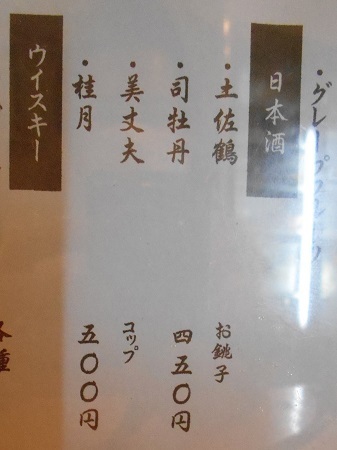 ・グレープフルーツ
日本酒
・土佐鶴 お銚子
・司牡丹 四五〇円
・美丈夫 コップ
・桂月 五〇〇円
ウイスキー
各種